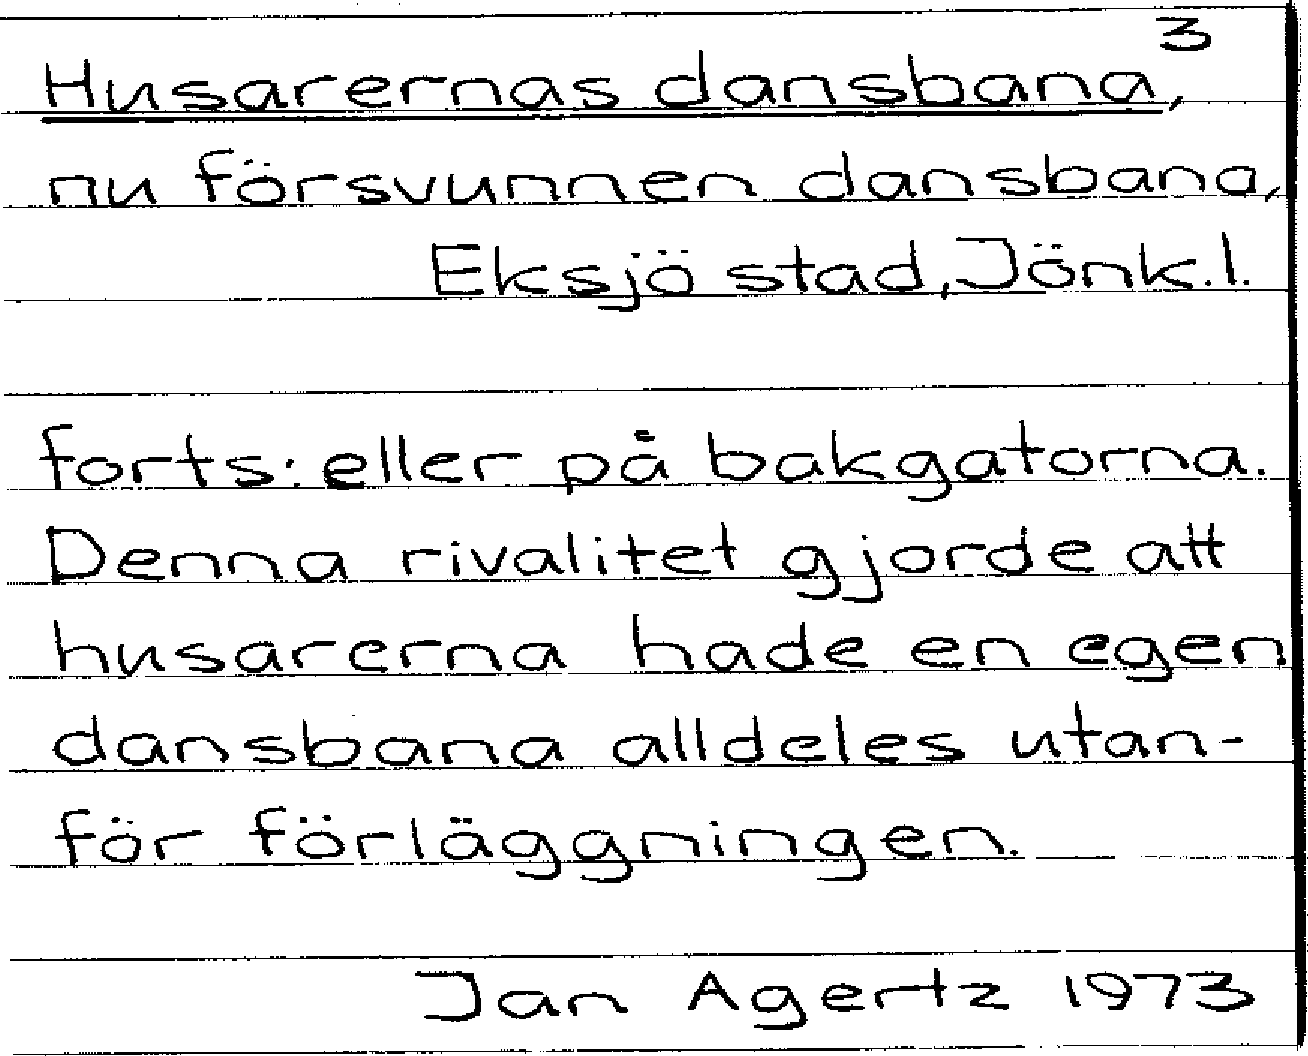 3
Husarernas dansbana,
nu försvunnen dansbana,
Eksjö stad, Jönk.l.
forts: eller på bakgatorna.
Denna rivalitet gjorde att
husarerna hade en egen
dansbana alldeles utan-
för förläggningen.
Jan Agertz 1973